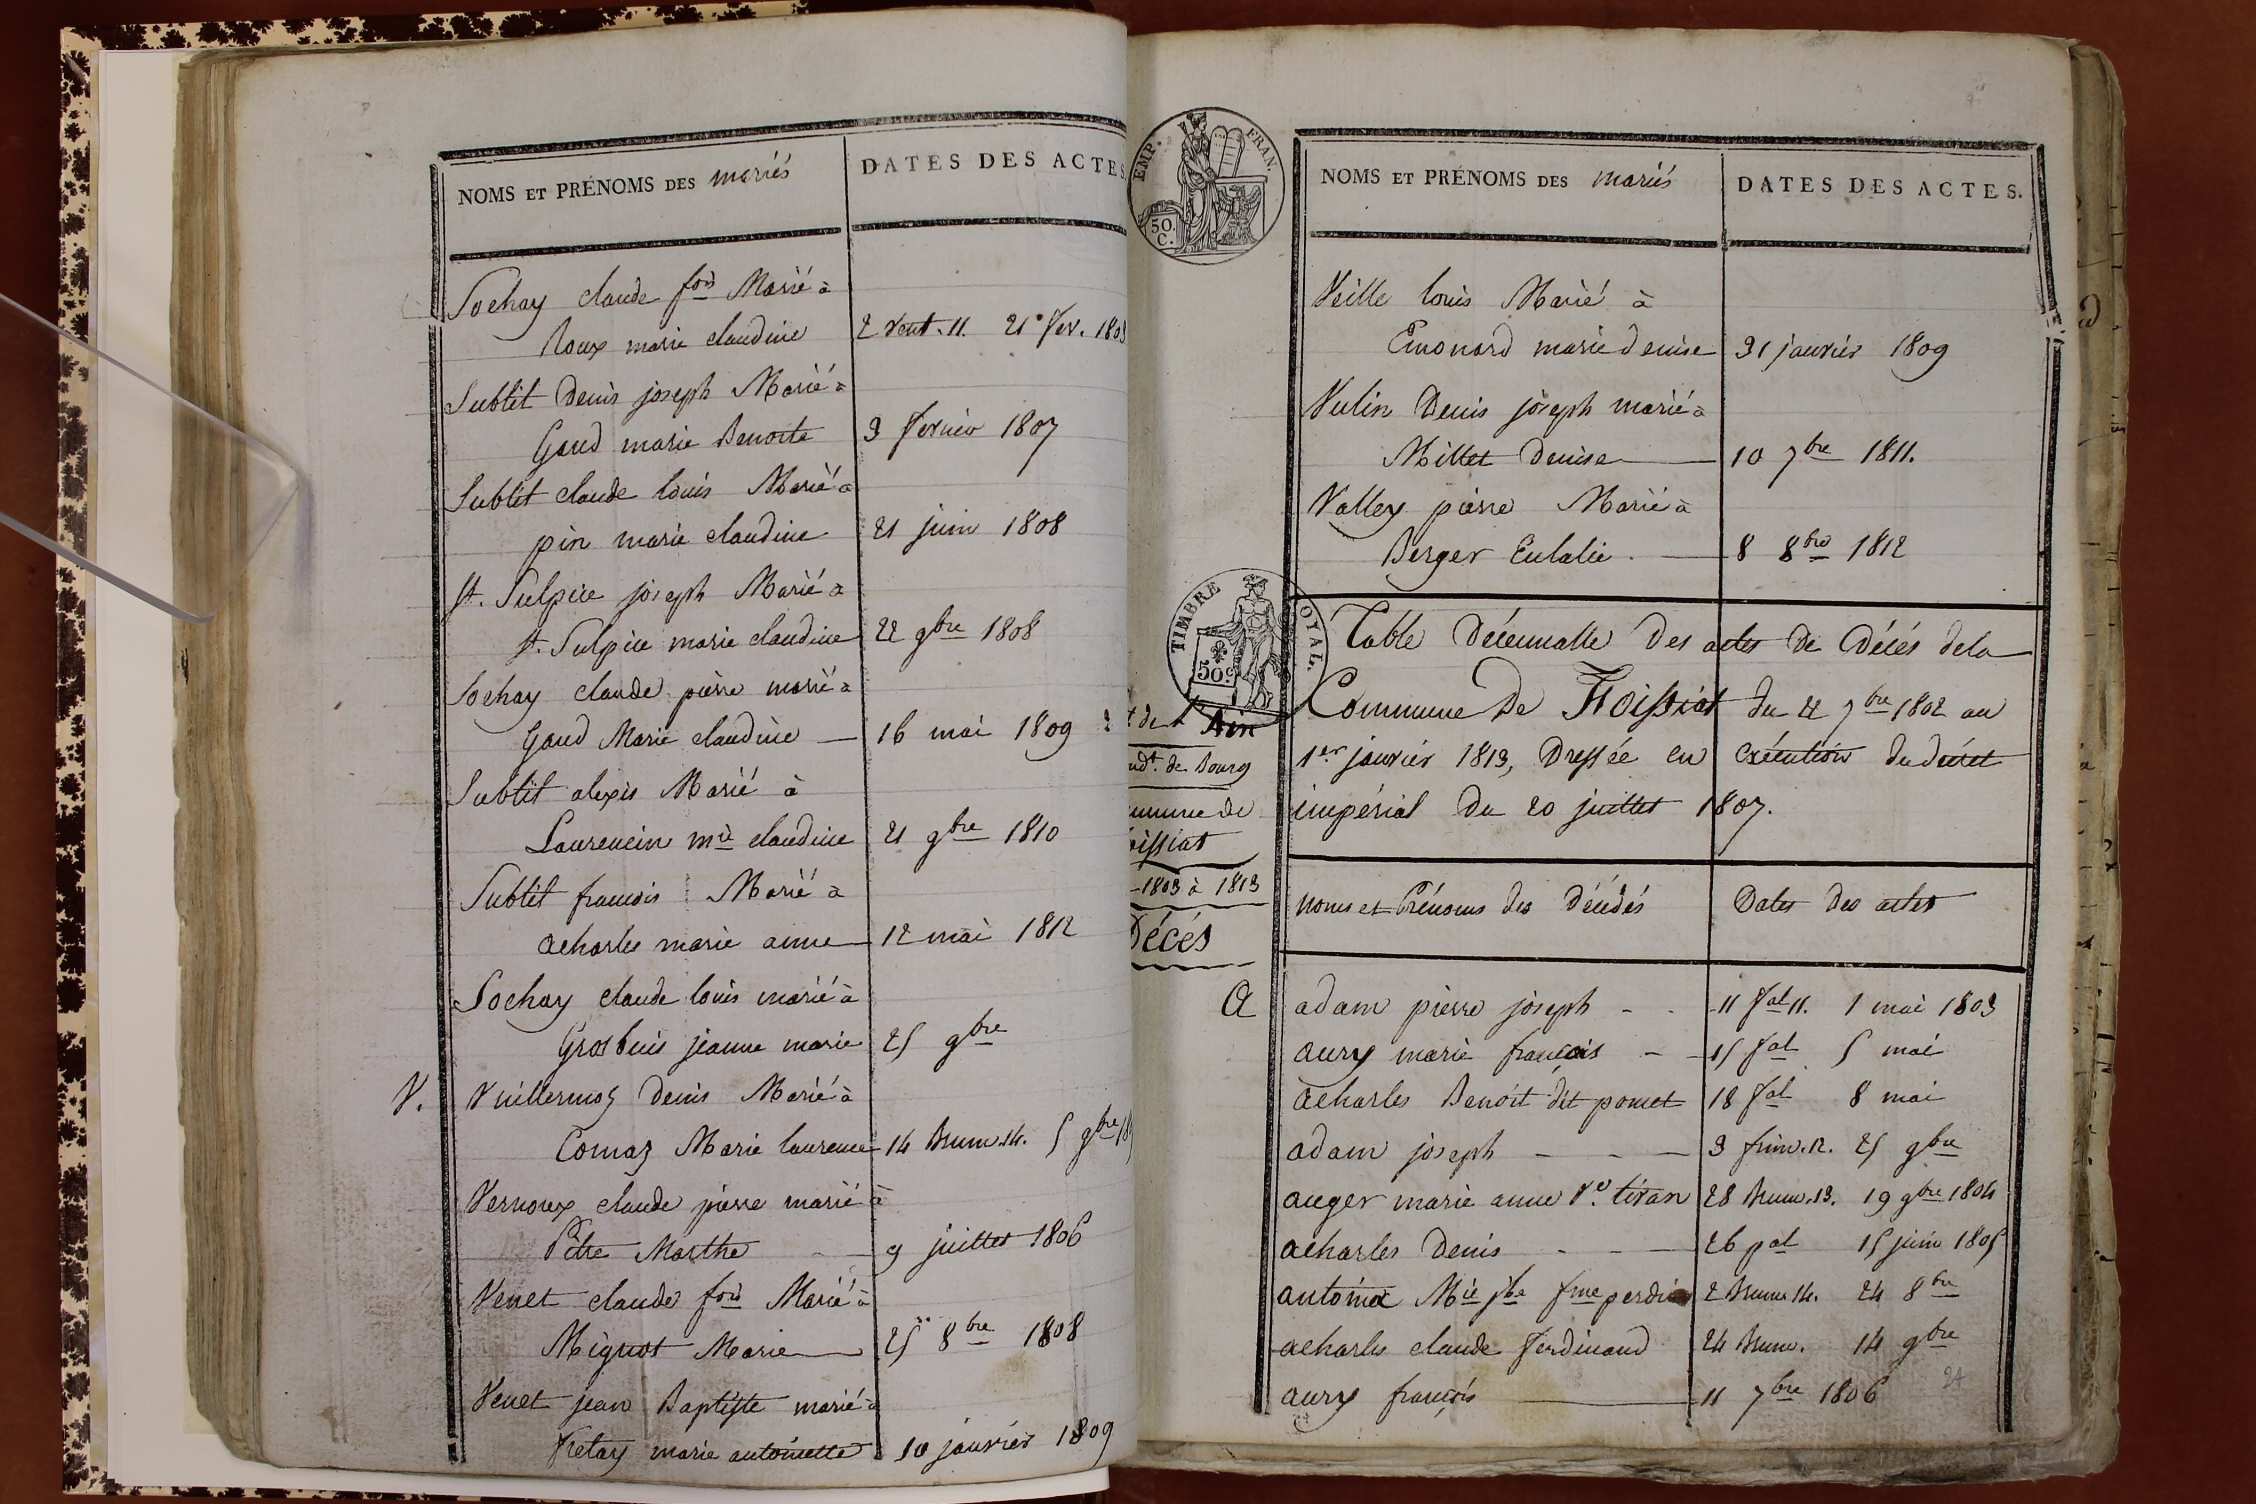 NOMS ET PRÉNOMS DES mariés
DATES DES ACTES
Sochay claude fois Marié à
Roux marie claudine 2 Vent. 11. 21 fev. 1803
Subtil Denis joseph Marié à
Gaud marie Benoite 3 fevrier 1807
Subtil claude louis Marié à
pin marie claudine 21 juin 1808
St. Sulpice joseph Marié à
St. Sulpice marie claudine 22 9bre 1808
Sochay claude pierre marié à
Gaud Marie claudine 16 mai 1809
Subtil alexis Marié à
Laurencin mie claudine 21 9bre 1810
Subtil francois Marié à
acharles marie anne 12 mai 1812
Sochay claude louis marié à
Grosbuis jeanne marie 25 9bre
V. Vuillermoz Denis Marié à
Comaz Marie laurence 14 Brum. 14. 5 9bre
Vernoux claude pierre marié à
Pitre Marthe 9 juillet 1806
Venet claude fois Marié à
Mignot Marie 25 8bre 1808
Venet jean Baptiste marié à
fretay marie antoinette 10 janvier 1809
EMP. FRAN.
50. C.
NOMS ET PRÉNOMS DES mariés
DATES DES ACTES.
Veille louis Marié à
Emonard marie denise 31 janvier 1809
Vulin Denis joseph marié à
Millet Denise 10 7bre 1811.
Valley pierre Marié à
Berger Eulalie. 8 8bre 1812
TIMBRE ROYAL.
50 c
Table Décennalle Des actes De Décés dela
Commune De Foissiat du 22 7bre 1802 au
1er janvier 1813, Dressée en exécution du décret
impérial du 20 juillet 1807.
t de l'Ain
ndt. de Bourg
mmune de
oissiat
1803 à 1813
Décés
noms et Prénoms des Décédés
Dates des actes
A adam pierre joseph 11 fal 11. 1 mai 1803
aury marie françois 15 fal 5 mai
acharles Benoit dit pomet 18 fal 8 mai
adam joseph 3 frim. 12. 25 9bre
auger marie anne Ve. tiran 28 Brum. 13. 19 9bre 1804
acharles Denis 26 pal 15 juin 1805
antoinet Mie jbe fme perdrix 2 Brum 14. 24 8bre
acharles claude ferdinand 24 Brum. 14 9bre
aury françois 11 7bre 1806
24